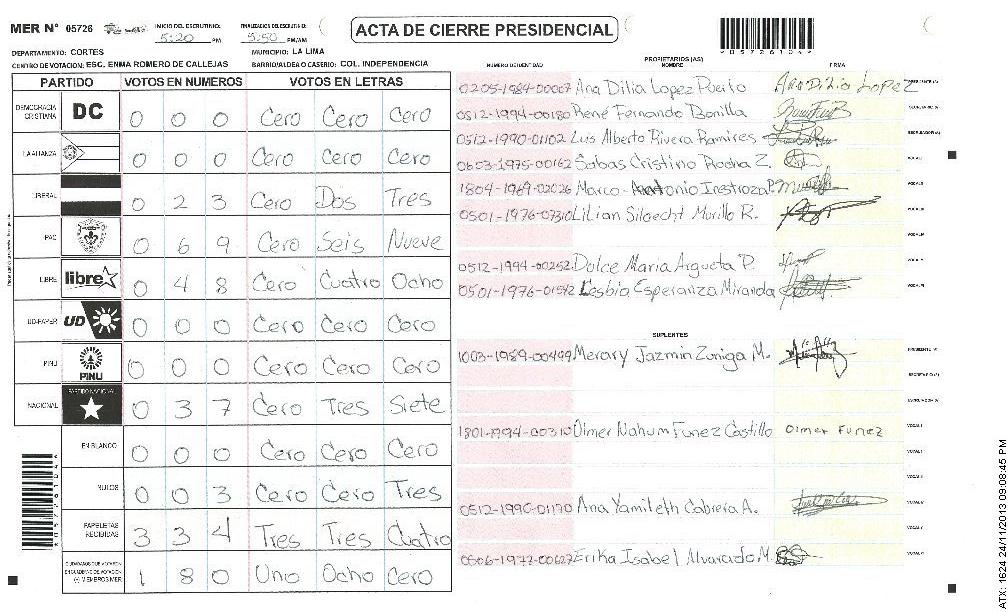 MER Nº 05726
INICIO DEL ESCRUTINIO: 5:20 PM
FINALIZACION DEL ESCRUTINIO: 5:50 PM/AM
ACTA DE CIERRE PRESIDENCIAL
DEPARTAMENTO: CORTES
MUNICIPIO: LA LIMA
CENTRO DE VOTACION: ESC. ENMA ROMERO DE CALLEJAS
BARRIO/ALDEA O CASERIO: COL. INDEPENDENCIA
PARTIDO VOTOS EN NUMEROS VOTOS EN LETRAS
DEMOCRACIA CRISTIANA DC 0 0 0 Cero Cero Cero
LA ALIANZA 0 0 0 Cero Cero Cero
LIBERAL 0 2 3 Cero Dos Tres
PAC 0 6 9 Cero Seis Nueve
LIBRE libre 0 4 8 Cero Cuatro Ocho
UD-FAPER UD 0 0 0 Cero Cero Cero
PINU PINU 0 0 0 Cero Cero Cero
NACIONAL PARTIDO NACIONAL 0 3 7 Cero Tres Siete
EN BLANCO 0 0 0 Cero Cero Cero
NULOS 0 0 3 Cero Cero Tres
PAPELETAS RECIBIDAS 3 3 4 Tres Tres Cuatro
CIUDADANOS QUE VOTARON EN CUADERNO DE VOTACION (+) MIEMBROS MER 1 8 0 Uno Ocho Cero
PROPIETARIOS (AS)
NUMERO DE IDENTIDAD NOMBRE FIRMA
0205-1984-00067 Ana Dilia Lopez Ana Dilia Lopez
0512-1994-00180 René Fernando Bonilla
0512-1990-01102 Luis Alberto Rivera Ramires
0603-1975-00162 Sabas Cristino Rocha Z.
1804-1969-02026 Marco Antonio Inestroza P.
0501-1976-07310 Lilian Murillo R.
0512-1994-00252 Dolce Maria Argueta P.
0501-1976-01542 Lesbia Esperanza Miranda
SUPLENTES
1003-1989-00499 Merary Jazmin Zuniga M.
1801-1994-00310 Olmer Nahum Funez Castillo Olmer Funez
0512-1990-01170 Ana Yamileth Cabrera A.
0506-1977-00627 Erika Isabel Alvarado M.
ATX: 1624 24/11/2013 09:08:45 PM